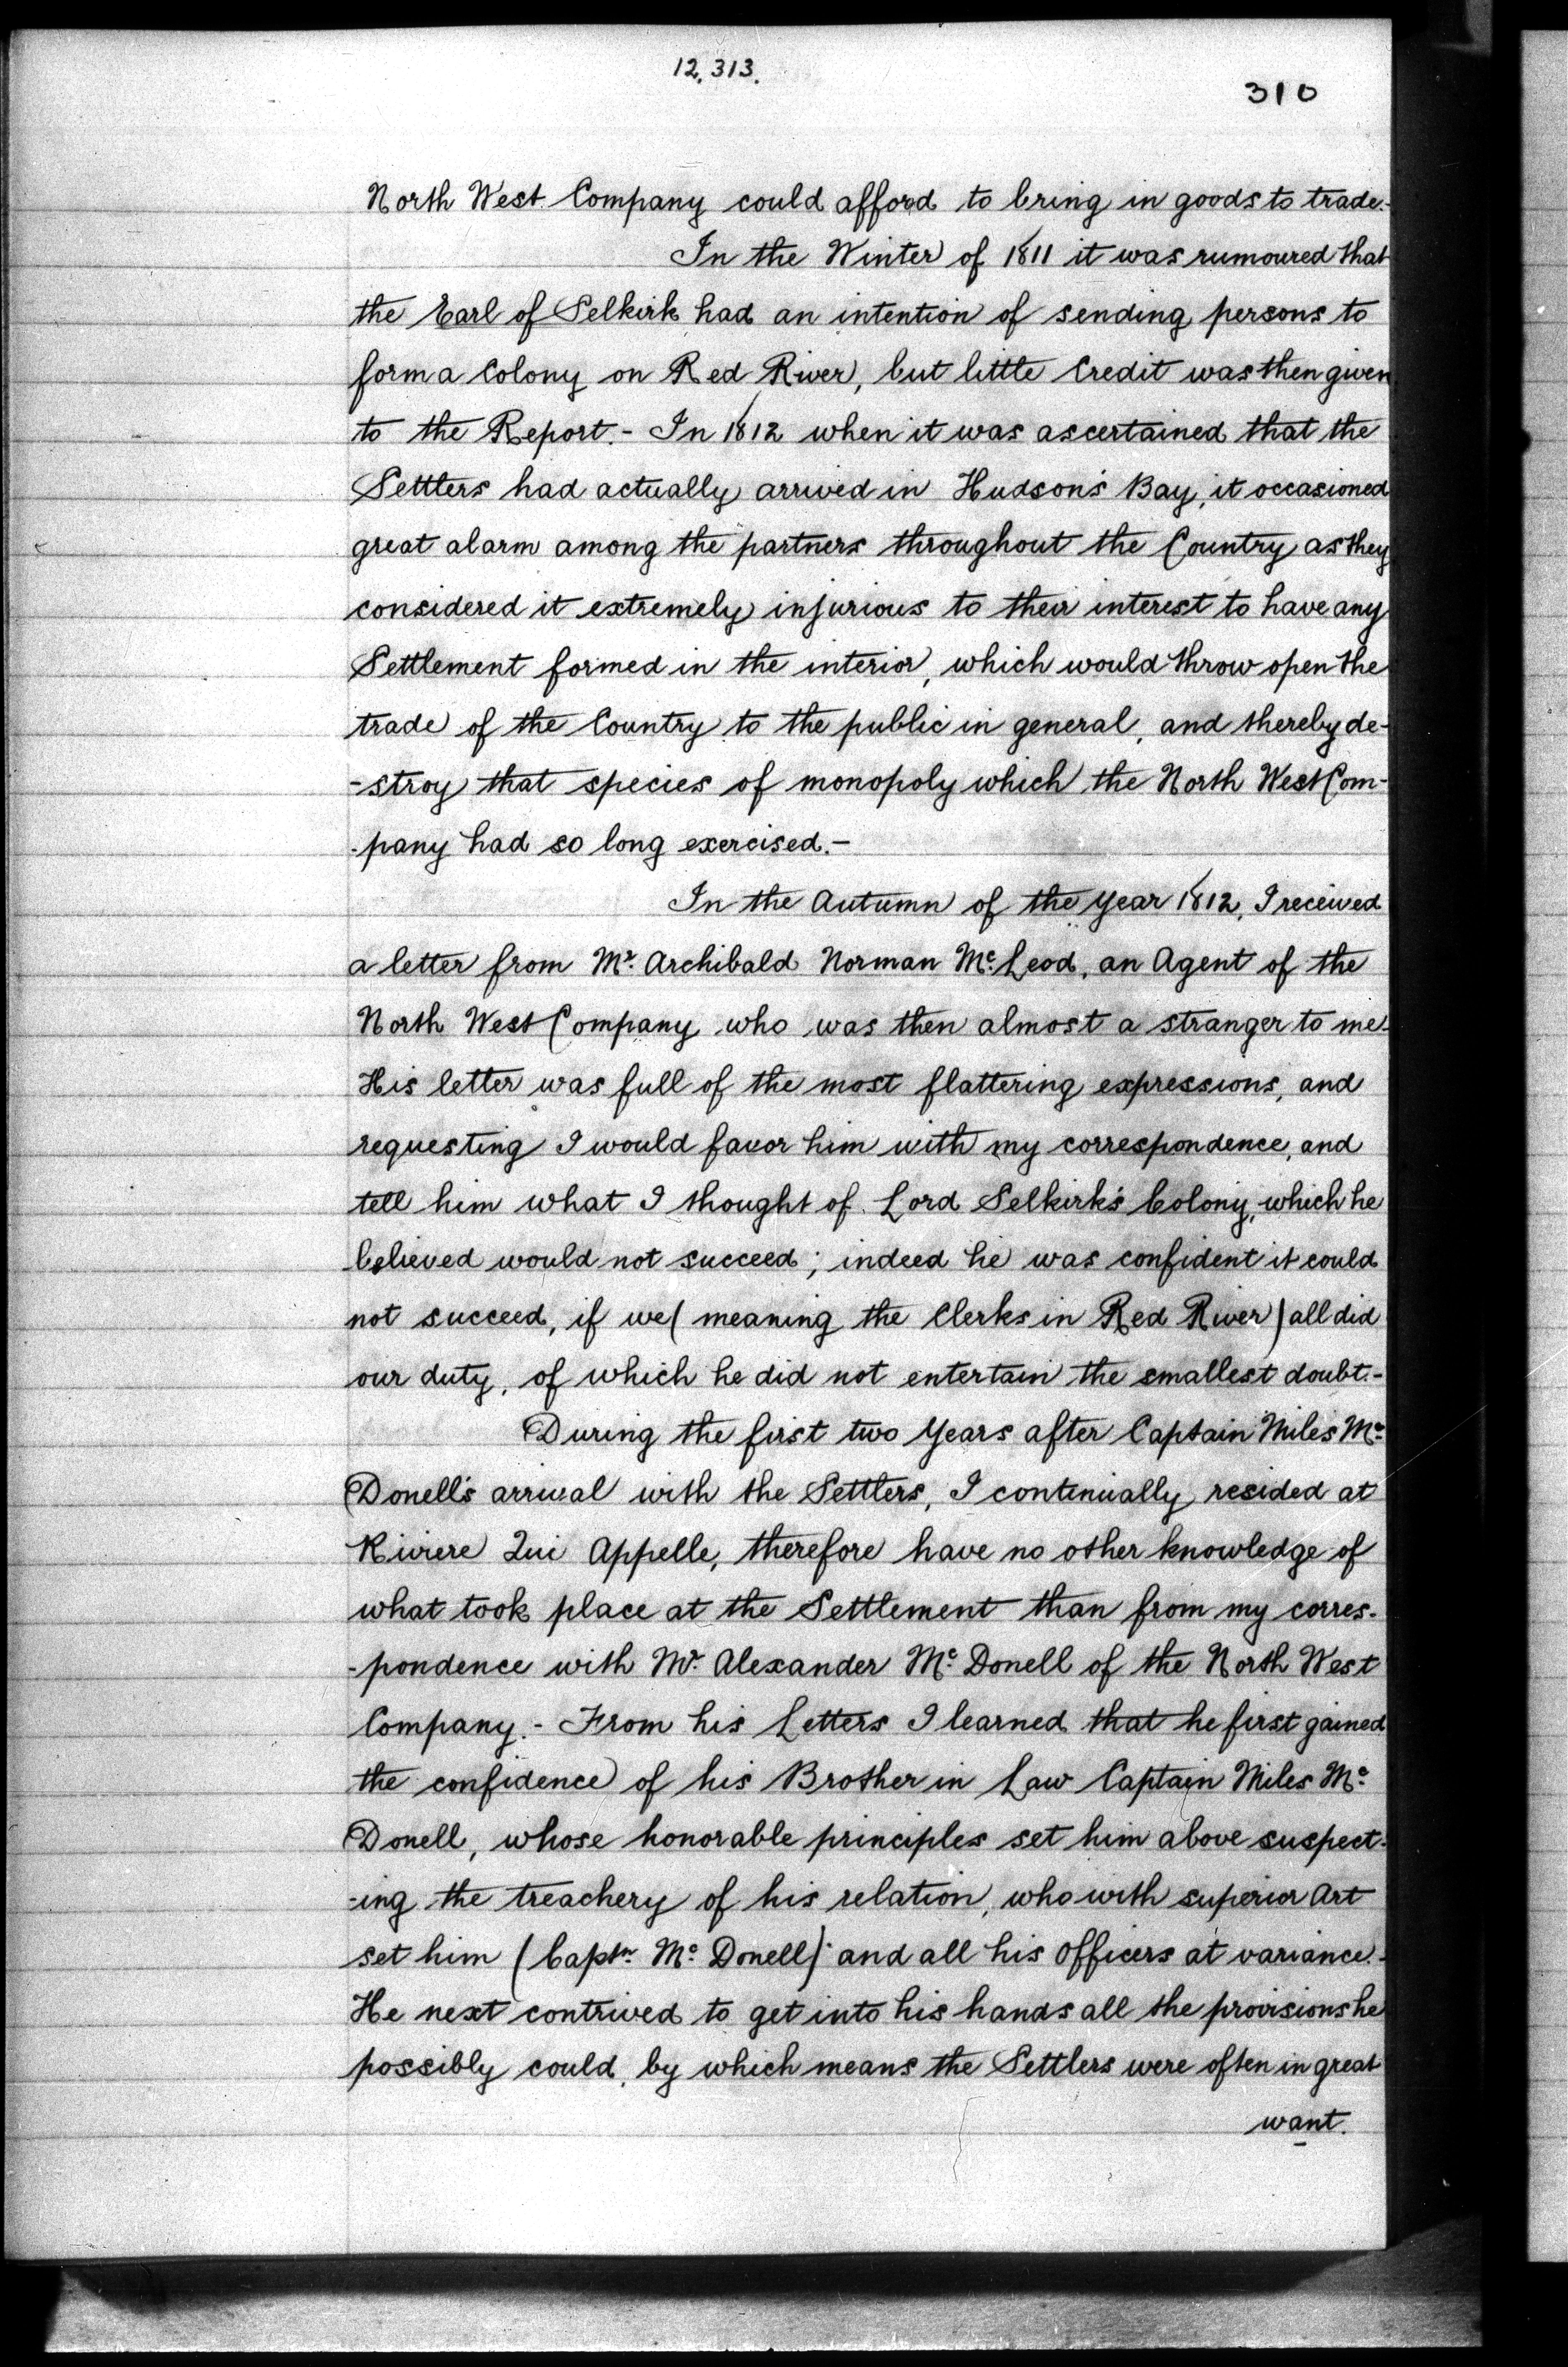 12,313.
310
North West Company could afford to bring in goods to trade.-
In the Winter of 1811 it was rumoured that
the Earl of Selkirk had an intention of sending persons to
form a Colony on Red River, but little Credit was then given
to the Report.- In 1812 when it was ascertained that the
Settlers had actually arrived in Hudson's Bay, it occasioned
great alarm among the partners throughout the Country as they
considered it extremely injurious to their interest to have any
Settlement formed in the interior, which would throw open the
trade of the Country to the public in general, and thereby de-
-stroy that species of monopoly which the North West Com-
-pany had so long exercised.-
In the Autumn of the year 1812, I received
a letter from Mr. Archibald Norman Mc. Leod, an Agent of the
North West Company who was then almost a stranger to me.
His letter was full of the most flattering expressions, and
requesting I would favor him with my correspondence, and
tell him what I thought of Lord Selkirk's Colony, which he
believed would not succeed; indeed he was confident it could
not succeed, if we (meaning the Clerks in Red River) all did
our duty, of which he did not entertain the smallest doubt.-
During the first two years after Captain Miles Mc.
Donell's arrival with the Settlers, I continually resided at
Rivière Qui Appelle, therefore have no other knowledge of
what took place at the Settlement than from my corres-
-pondence with Mr. Alexander Mc. Donell of the North West
Company.- From his Letters I learned that he first gained
the confidence of his Brother in Law Captain Miles Mc.
Donell, whose honorable principles set him above suspect-
-ing the treachery of his relation, who with superior Art
set him (Captn. Mc. Donell) and all his Officers at variance.-
He next contrived to get into his hands all the provisions he
possibly could, by which means the Settlers were often in great
want.